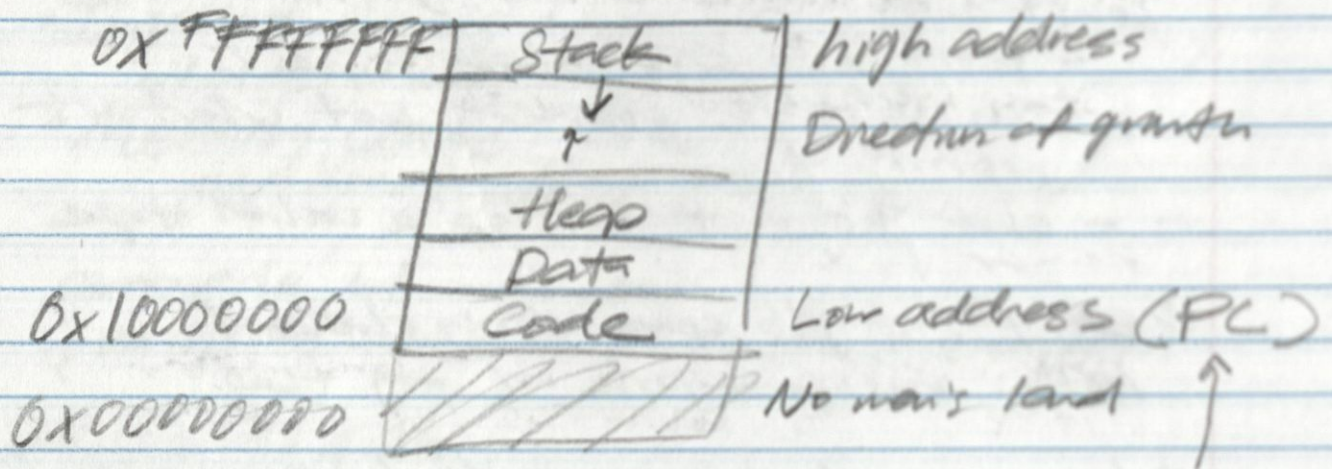 0x FFFFFFFF Stack high address
Direction of growth
Heap
Data
0x10000000 Code Low address (PC)
0x00000000 No man's land